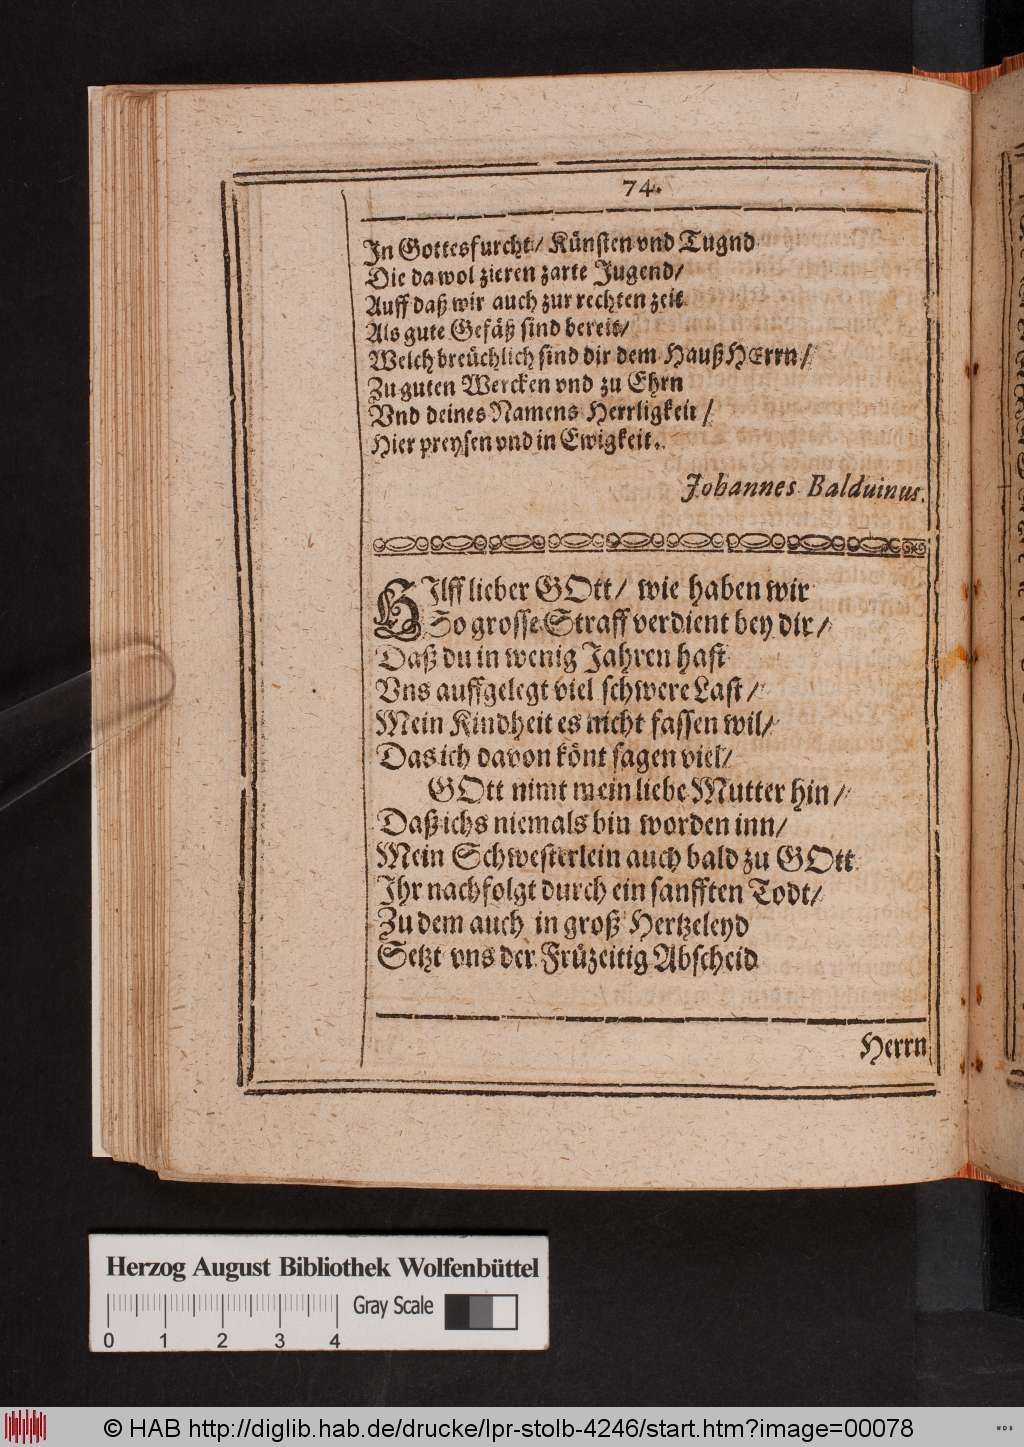 74.
In Gottesfurcht/ Künsten vnd Tugnd
Die da wol zieren zarte Jugend/
Auff daß wir auch zur rechten zeit
Als gute Gefäß sind bereit/
Welch breüchlich sind dir dem Hauß HErrn/
Zu guten Wercken vnd zu Ehrn
Vnd deines Namens Herrligkeit/
Hier preysen vnd in Ewigkeit.
Johannes Balduinus.
HIlff lieber GOtt/ wie haben wir
So grosse Straff verdient bey dir/
Daß du in wenig Jahren hast
Vns auffgelegt viel schwere Last/
Mein Kindheit es nicht fassen wil/
Das ich davon könt sagen viel/
GOtt nimt mein liebe Mutter hin/
Daß ichs niemals bin worden inn/
Mein Schwesterlein auch bald zu GOtt
Ihr nachfolgt durch ein sanfften Todt/
Zu dem auch in groß Hertzeleyd
Setzt vns der Früzeitig Abscheid
Herrn
Herzog August Bibliothek Wolfenbüttel
Gray Scale
0 1 2 3 4
© HAB http://diglib.hab.de/drucke/lpr-stolb-4246/start.htm?image=00078